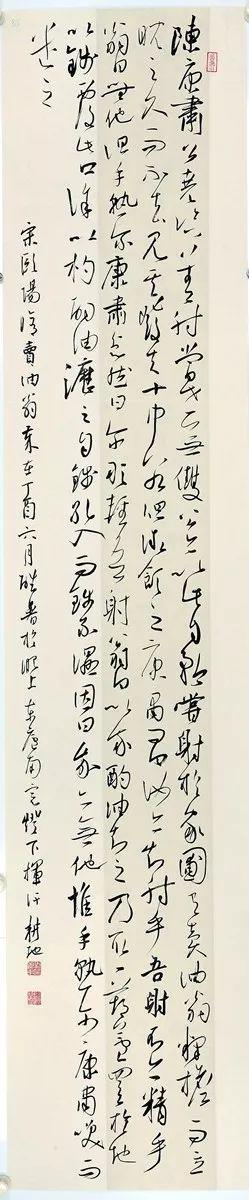 陳康肅公堯咨善射當世無雙公亦以此自矜嘗射於家圃有賣油翁釋擔而立
睨之久而不去見其發矢十中八九但微頷之康肅問曰汝亦知射乎吾射不亦精乎
翁曰無他但手熟尔康肅忿然曰尔敢輕吾射翁曰以我酌油知之乃取一葫蘆置於地
以錢覆其口徐以杓酌油瀝之自錢孔入而錢不濕因曰我亦無他惟手熟尔康肅笑而
遣之
宋歐陽修賣油翁歲在丁酉六月酷暑於上東廬南窗燈下揮汗耕地